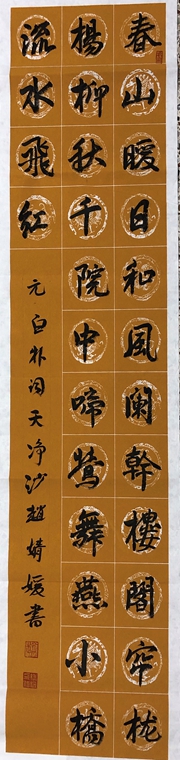 春山暖日和風闌幹樓閣帘栊
楊柳秋千院中啼鶯舞燕小橋
流水飛紅
元白朴词天净沙趙婧媛書